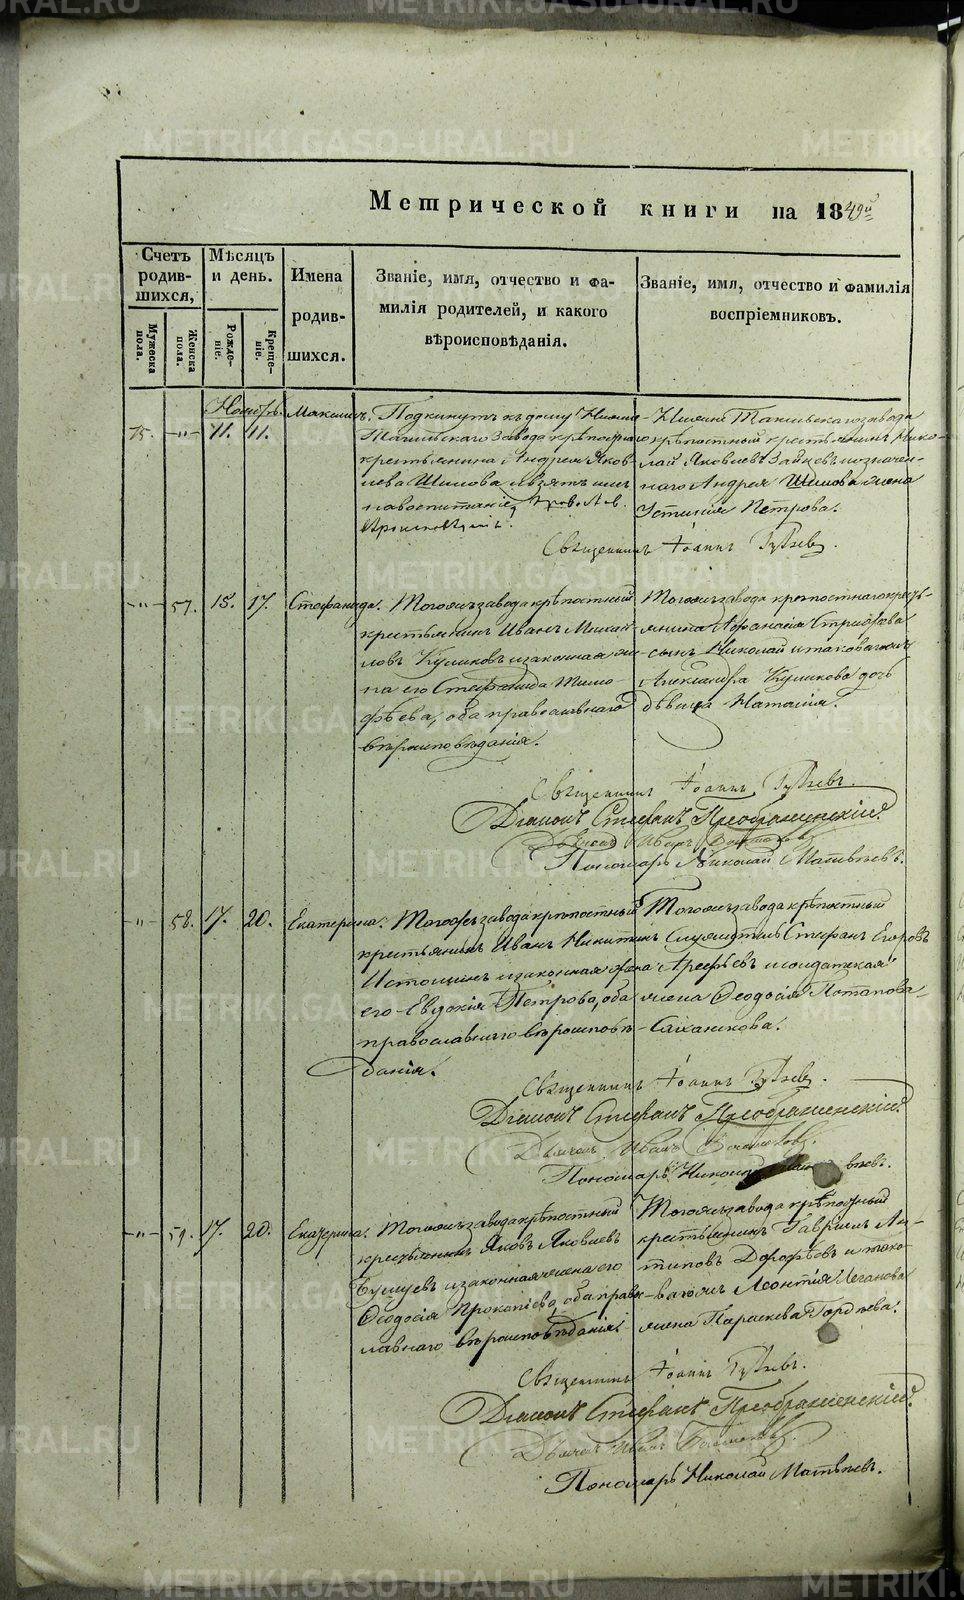 METRIKI.GASO-URAL.RU
Метрической книги на 1849й
Счетъ родив-шихся,
Мѣсяцъ и день.
Имена родив-шихся.
Званіе, имя, отчество и фа-
милія родителей, и какого
вѣроисповѣданія.
Званіе, имя, отчество и фамилія
воспріемниковъ.
Мужеска пола.
Женска пола.
Рожде-ніе.
Креще-ніе.
Ноябрь.
75. -"- 11. 11. Максимъ.
Подкинутъ къ дому Нижне-
Тагильскаго завода крѣпостнаго
крестьянина Андрея Яков-
лева Шилова и взятъ имъ
на воспитаніе, Православ.
вѣроисповѣданія.
Нижне Тагильскаго завода
крѣпостный крестьянинъ Нико-
лай Яковлевъ Зайцевъ и означен-
наго Андрея Шилова жена
Устинія Петрова.
Священникъ Іоаннъ
-"- 57. 15. 17. Стефанида.
Тогожъ завода крѣпостный
крестьянинъ Иванъ Михай-
ловъ Куликовъ и законная же-
на его Стефанида Тимо-
фѣева, оба православнаго
вѣроисповѣданія.
Тогожъ завода крѣпостнаго кресть-
янина Афанасія
сынъ Николай и таковагожъ
Александра Куликова дочь
дѣвица Наталія.
Священникъ Іоаннъ
Діаконъ Стефанъ Преображенскій.
Дьячекъ Иванъ
Пономарь Николай Матвѣевъ.
-"- 58. 17. 20. Екатерина.
Тогожъ завода крѣпостный
крестьянинъ Иванъ Никитинъ
Истоминъ и законная жена
его Евдокія Петрова, оба
православнаго вѣроисповѣ-
данія.
Тогожъ завода крѣпостный
Служитель Стефанъ Егоровъ
Арефьевъ и солдатская
жена Ѳеодосія Потапова
Священникъ Іоаннъ
Діаконъ Стефанъ Преображенскій.
Дьячекъ Иванъ
Пономарь Николай
-"- 59. 17. 20. Екатерина.
Тогожъ завода крѣпостный
крестьянинъ Яковъ Яковлевъ
и законная жена его
Ѳеодосія Прокопіева, оба право-
славнаго вѣроисповѣданія.
Тогожъ завода крѣпостный
крестьянинъ Гавріилъ Ан-
типовъ Дорофѣевъ и тако-
вагожъ Леонтія
жена Параскева Гордѣева.
Священникъ Іоаннъ
Діаконъ Стефанъ Преображенскій.
Дьячекъ Иванъ
Пономарь Николай Матвѣевъ.